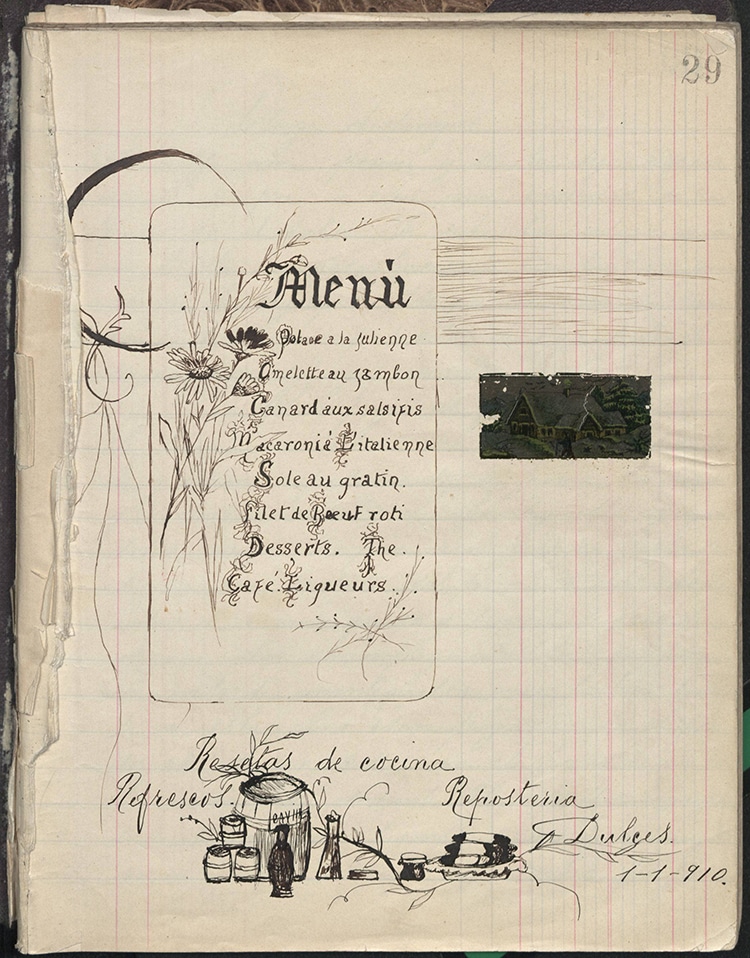 29
Menú
Potage a la Julienne
Omelette au jambon
Canard aux salsifis
Macaroni à L'italienne
Sole au gratin.
Filet de Bœuf roti
Desserts. The.
Café. Liqueurs.
Resetas de cocina
Refrescos. Reposteria
y Dulces.
1-1-910.